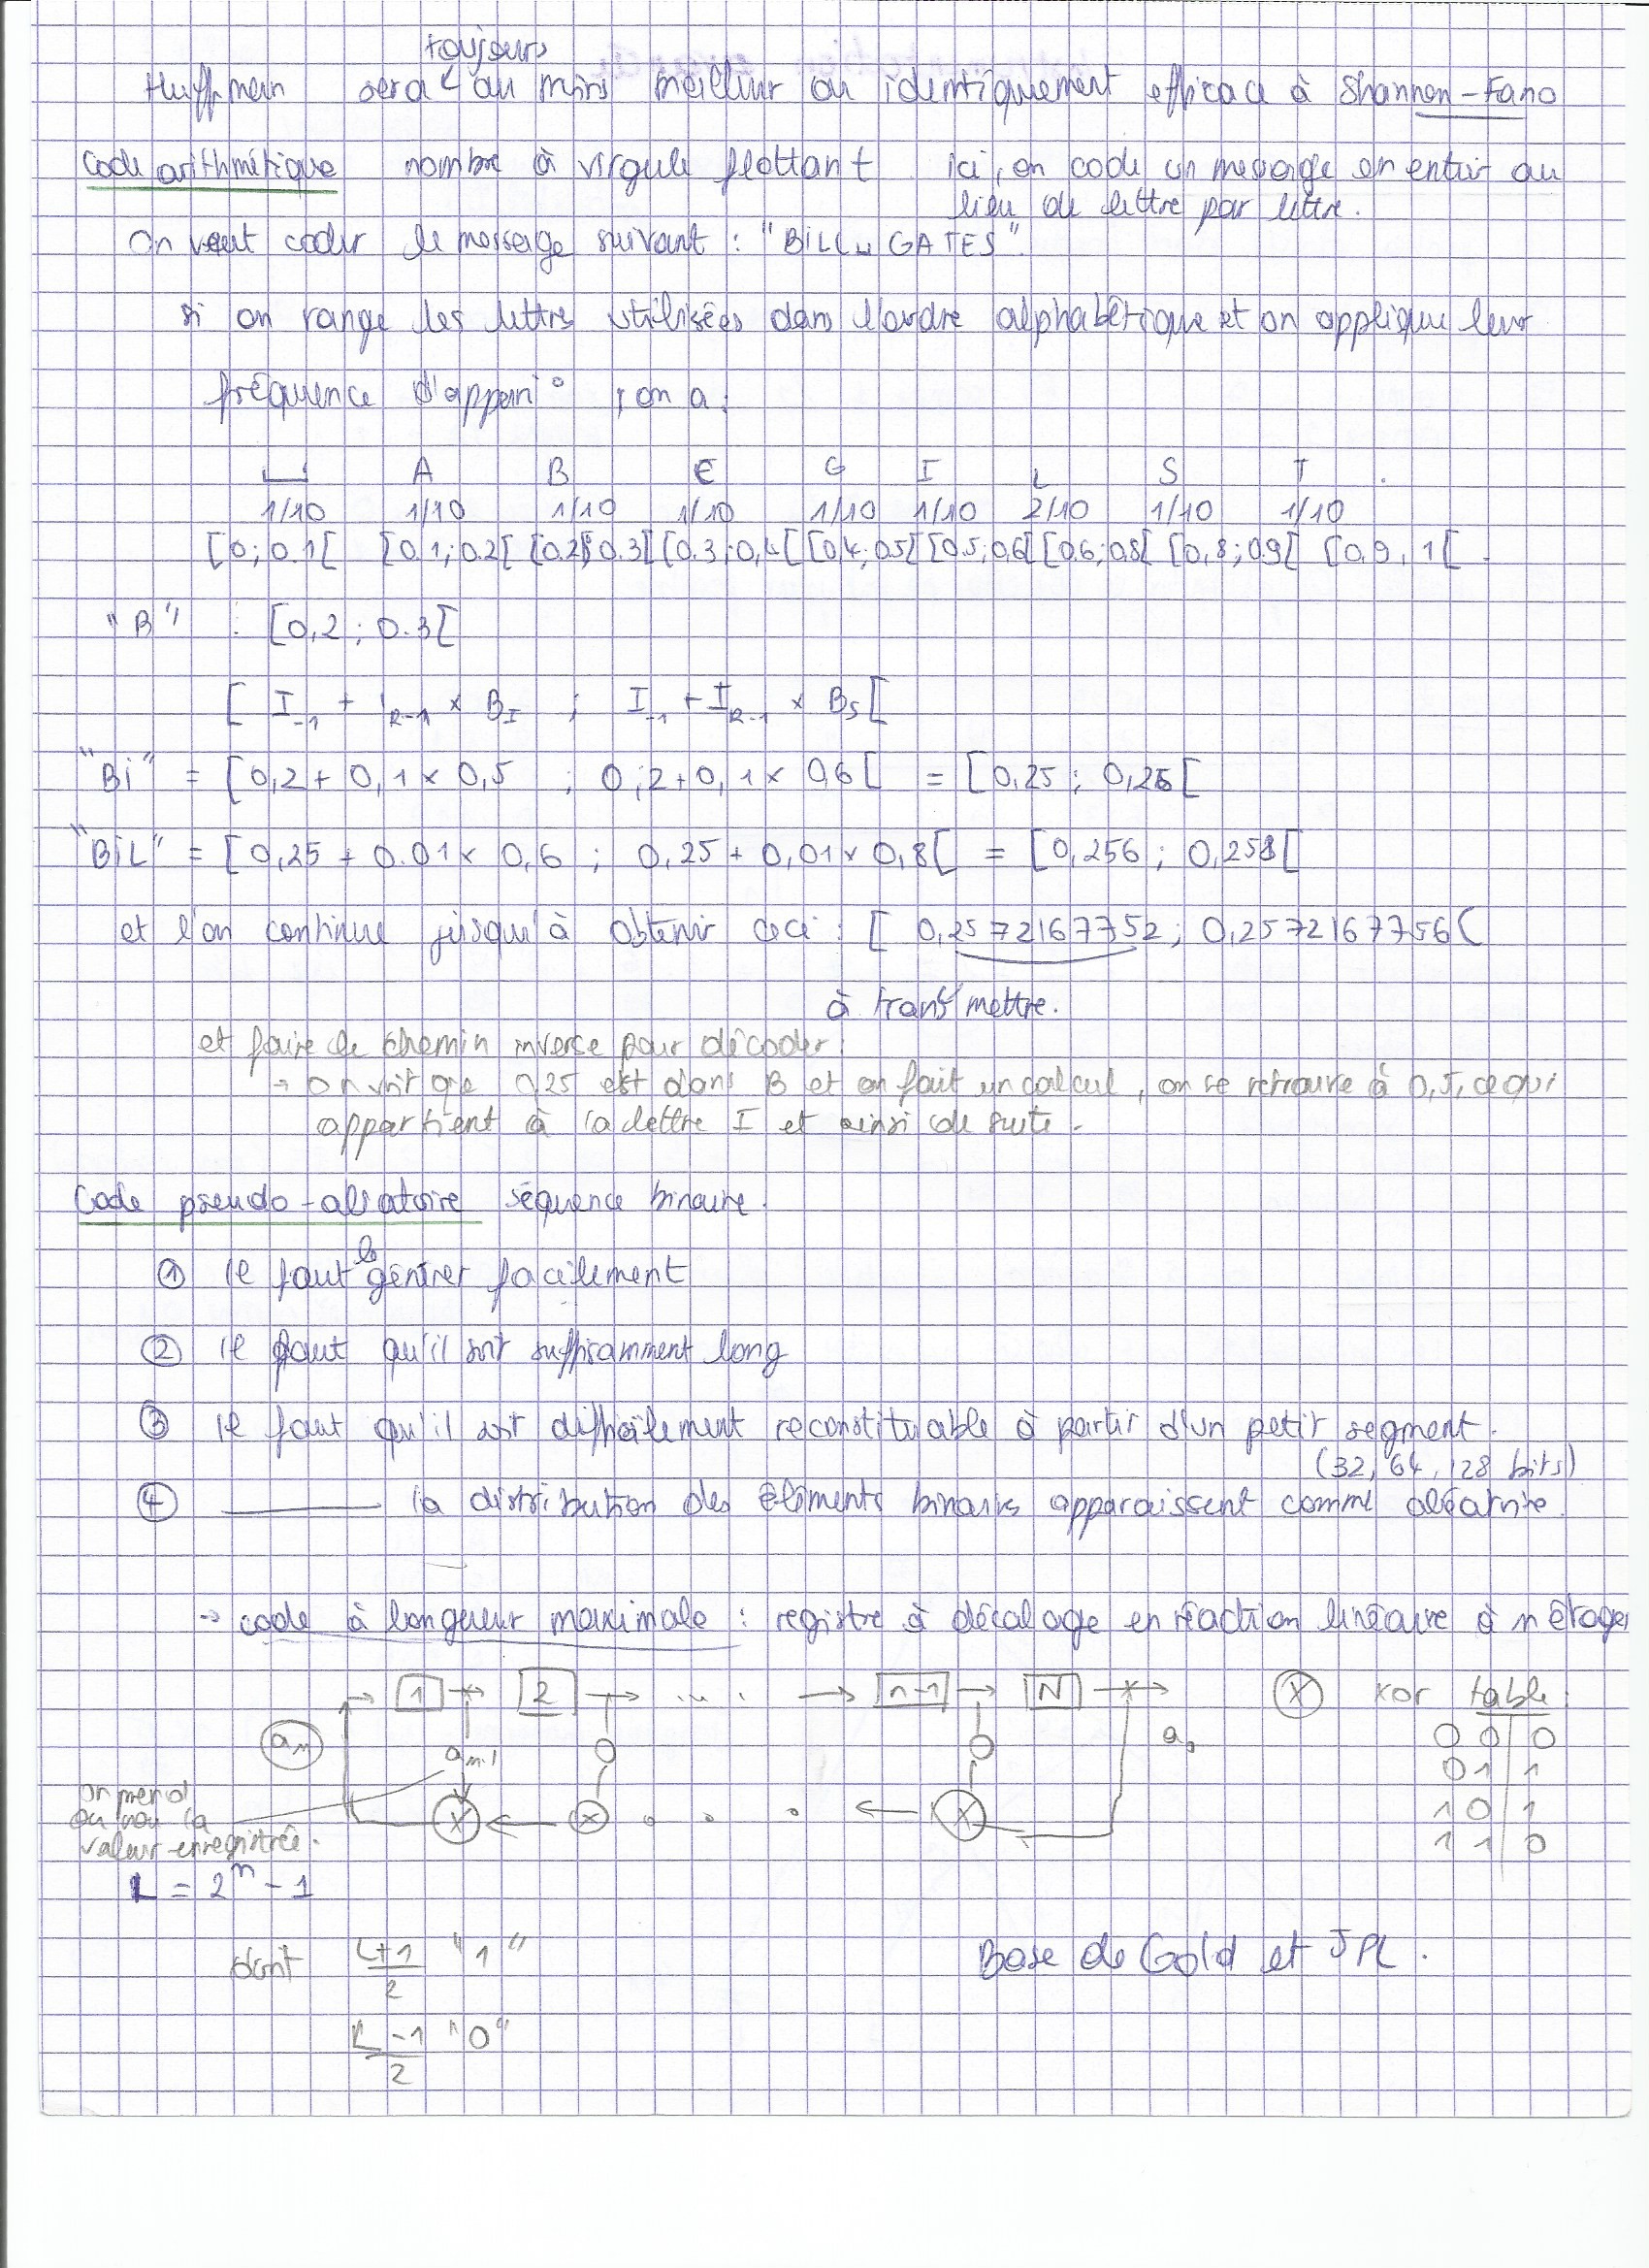 toujours
Huffman sera au mins meilleur ou identiquement efficace à Shannon-Fano
Code arithmétique nombre à virgule flottant ici, on code un message en entier au
lieu de lettre par lettre.
On veut coder le message suivant : "BILL␣GATES".
si on range les lettres utilisées dans l'ordre alphabétique et on applique leur
fréquence d'appari° , on a :
␣ A B E G I L S T
1/10 1/10 1/10 1/10 1/10 1/10 2/10 1/10 1/10
[0; 0.1[ [0,1; 0.2[ [0.2; 0.3[ [0.3; 0,4[ [0,4; 0,5[ [0.5; 0,6[ [0.6; 0,8[ [0,8; 0.9[ [0.9, 1[.
"B" : [0,2; 0.3[
[ I₋₁ + I_R-1 × B_I ; I₋₁ + I_R-1 × B_S [
"Bi" = [0,2 + 0,1 × 0,5 ; 0,2 + 0,1 × 0,6[ = [0,25; 0,26[
"BiL" = [0,25 + 0.01 × 0,6 ; 0,25 + 0,01 × 0,8[ = [0,256; 0,258[
et l'on continue jusqu'à obtenir ceci : [0,2572167752; 0,2572167756[
à transmettre.
et faire le chemin inverse pour décoder :
→ on voit que 0,25 est dans B et on fait un calcul, on se retrouve à 0,5, ce qui
appartient à la lettre I et ainsi de suite.
Code pseudo-aléatoire séquence binaire.
① il faut le générer facilement
② il faut qu'il soit suffisamment long
③ il faut qu'il soit difficilement reconstituable à partir d'un petit segment.
(32, 64, 128 bits)
④ ———— la distribution des éléments binaires apparaissent comme aléatoire.
→ code à longueur maximale : registre à décalage en réaction linéaire à n étages
→ 1 → 2 → ... → n-1 → N → ⊗ xor table :
aₙ aₙ₋₁ a₀
0 0 0
0 1 1
1 0 1
1 1 0
on prend
ou non la
valeur enregistrée.
L = 2ⁿ - 1
dont (L+1)/2 "1"
(L-1)/2 "0"
Base de Gold et JPL.